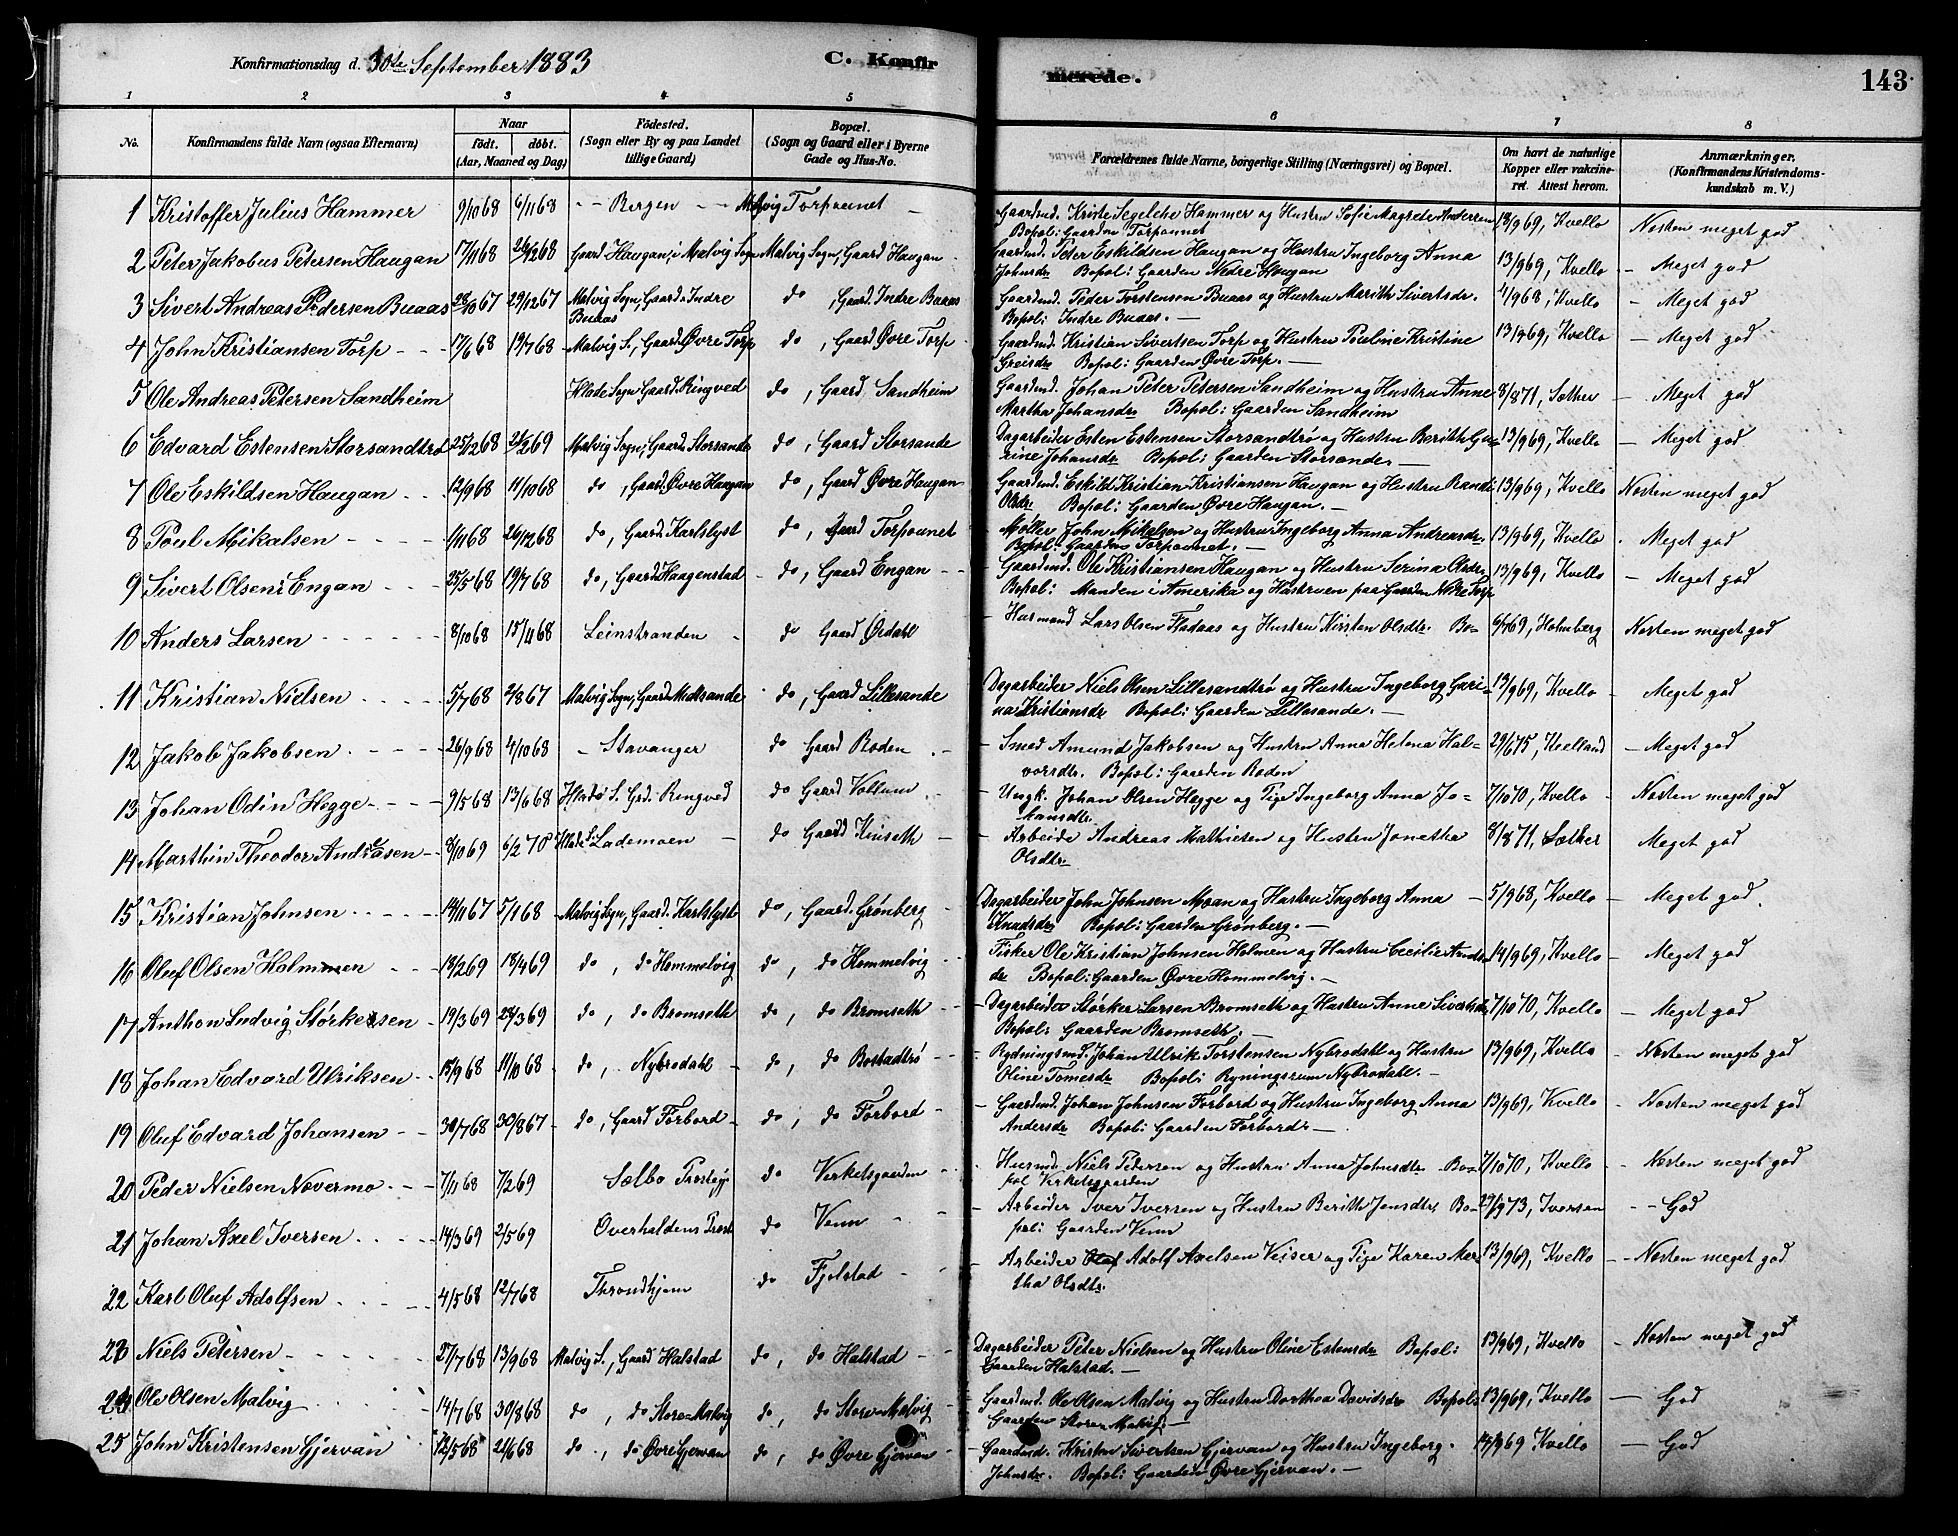 Konfirmationsdag d. 30te September 1883
C. Konfirmerede.
143.
1 2 3 4 5 6 7 8
No.
Konfirmandens fulde Navn (ogsaa Efternavn)
Naar
födt. döbt.
(Aar, Maaned og Dag)
Födested.
(Sogn eller By og paa Landet
tillige Gaard)
Bopæl.
(Sogn og Gaard eller i Byerne
Gade og Hus-No.
Forældrenes fulde Navne, borgerlige Stilling (Næringsvei) og Bopæl.
Om havt de naturlige
Kopper eller vakcine-
ret. Attest herom.
Anmærkninger.
(Konfirmandens Kristendoms-
kundskab m. V.)
1 Kristoffer Julius Hammer 9/10 68 6/11 68 Bergen Malvig Torpounet Gaardmd. Hammer og Hustru Sofie Magrete 13/9 69, Kvello Næsten meget god
Bopæl: Gaarden Torpounet
2 Peter Jakobus Petersen Haugan 17/11 68 26/12 68 Gaard Haugan, i Malvig Sogn Malvig Sogn, Gaard Haugan Gaardmd. Peter Eskildsen Haugan og Hustru Ingeborg Anna 13/9 69, Kvello Meget god
Johnsdr Bopæl: Gaarden Nedre Haugan
3 Sivert Andreas Pedersen Buaas 28/10 67 29/12 67 Malvig Sogn, Gaard Indre do, Gaard Indre Buaas Gaardmd. Peder Torstensen Buaas og Hustru Marith Sivertsdr. 4/9 68, Kvello Meget god
Buaas Bopæl: Indre Buaas.
4 John Kristiansen Torp 17/6 68 19/7 68 Malvig S., Gaard Øvre Torp do, Gaard Øvre Torp Gaardmd. Kristian Sivertsen Torp og Hustru Pouline Kristine 13/9 69, Kvello Meget god
Greisdr Bopæl: Gaarden Øvre Torp.
5 Ole Andreas Petersen Sandheim Hlade Sogn Gaard Ringved do, Gaard Sandheim Gaardmd. Johan Peter Petersen Sandheim og Hustru Anne 8/8 71, Sæther Meget god
Martha Johansdr Bopæl: Gaarden Sandheim
6 Edvard Estensen Storsandtrø 25/12 68 21/2 69 Malvig Sogn, Gaard Storsande do, Gaard Storsande Dagarbeider Esten Estensen Storsandtrø og Hustru Berith Gu- 13/9 69, Kvello Meget god
rine Johansdr Bopæl: Gaarden Storsande.
7 Ole Eskildsen Haugan 12/9 68 11/10 68 do, Gaard Øvre Haugan do, Gaard Øvre Haugan Gaardmd. Eskild Kristian Kristiansen Haugan og Hustru Randi 13/9 69, Kvello Næsten meget god
Olsdr Bopæl: Gaarden Øvre Haugan.
8 Poul Mikalsen 1/11 68 26/12 68 do, Gaard Karlslyst do, Gaard Torpounet Møller John Mikalsen og Hustru Ingeborg Anna Andreasdr. 13/9 69, Kvello Meget god
Bopæl: Gaarden Torpounet.
9 Sivert Olsen Engan 25/5 68 19/7 68 do, Gaard Haagenstad do, Gaard Engan Gaardmd. Ole Kristiansen Haugan og Hustru Serina Olsdr 13/9 69, Kvello Meget god
Bopæl: Manden i Amerika og Hustruen paa Gaarden Nedre Torp
10 Anders Larsen 8/10 68 15/4 68 Leinstranden do Gaard Ødahl Husmand Lars Olsen Fladaas og Hustru Kirsten Olsdtr. Bo- 6/7 69, Holmberg Næsten meget god
11 Kristian Nielsen 5/7 68 2/8 67 Malvig Sogn, Gaard Midtsande do, Gaard Lillesande Dagarbeider Niels Olsen Lillesandtrø og Hustru Ingeborg Guri- 13/9 69, Kvello Meget god
na Kristiansdr Bopæl: Gaarden Lillesande.
12 Jakob Jakobsen 26/9 68 4/10 68 Stavanger do Gaard Roden Smed Amund Jakobsen og Hustru Anna Helena Hal- 29/6 75, Kvelland Meget god
vorsdtr. Bopæl: Gaarden Roden
13 Johan Odin Hegge 9/5 68 13/6 68 Hlade S. Grd. Ringved do Gaard Vollum Ungk. Johan Olsen Hegge og Pige Ingeborg Anna Jo- 7/10 70, Kvello Næsten meget god
hansdtr
14 Marthin Theodor Andreasen 8/10 69 6/2 70 Hlade S. Lademoen do Gaard Kinseth Arbeide Andreas Mathiesen og Hustru Jonetha 8/8 71, Sæther Meget god
Olsdtr
15 Kristian Johnsen 14/11 67 5/1 68 Malvig Sogn, Gaard Karlslyst do, Gaard Grønberg Dagarbeider John Johnsen Moan og Hustru Ingeborg Anna 5/9 68, Kvello Meget god.
Knudsdr Bopæl: Gaarden Grønberg.
16 Oluf Olsen Holmen 18/2 69 18/4 69 do, do Hommelvig do, do Hommelvig Fisker Ole Kristian Johnsen Holmen og Hustru Cecilie 14/9 69, Kvello Meget god
dr Bopæl: Gaarden Øvre Hommelvig.
17 Anthon Ludvig Størkersen 19/3 69 28/3 69 do, do Bromseth do, do Bromseth Dagarbeider Størker Larsen Bromseth og Hustru Anne Sivertsdr 7/10 70, Kvello Meget god
Bopæl: Gaarden Bromseth.
18 Johan Edvard Ulriksen 15/9 68 11/10 68 do, Nybrodahl do, do Bostadtrø Rydningsmd. Johan Ulrik Torstensen Nybrodahl og Hustru 13/9 69, Kvello Næsten meget god
Oline Tomesdr Bopæl: Rydningsrum Nybrodahl.
19 Oluf Edvard Johansen 30/7 68 30/8 67 do, Gaard Forbord do, do Forbord Gaardmd. Johan Johnsen Forbord og Hustru Ingeborg Anna 13/9 69, Kvello Næsten meget god
Andersdr Bopæl: Gaarden Forbord
20 Peder Nielsen Nævermo 7/11 68 7/2 69 Sælbo Prestegj do Verketsgaarden Husmd. Niels Pedersen og Hustru Anna Johnsdtr Bo- 7/10 70, Kvello Næsten meget god
pæl Verketsgaarden
21 Johan Axel Iversen 14/3 69 2/5 69 Overhaldens Prest do Venn Arbeider Iver Iversen og Hustru Berith Jonsdtr Bo- 29/9 73, Iversen God
pæl: Gaarden Venn
22 Karl Oluf Adolfsen 4/5 68 12/7 68 Throndhjem do Fjelstad Arbeider Adolf Axelsen Veiser og Pige Karen Mar- 13/9 69, Kvello Næsten meget god
tha Olsdtr.
23 Niels Petersen 27/7 68 13/9 68 Malvig S., Gaard Halstad do, do Halstad Dagarbeider Peter Nielsen og Hustru Oline Estensdr Bopæl: 13/9 69, Kvello Næsten meget god
Gaarden Halstad.
24 Ole Olsen Malvig 14/7 68 30/8 68 do, do Store-Malvig do, do Store-Malvig Gaardmd. Ole Olsen Malvig og Hustru Dorthea Davidsdr Bopæl: 13/9 69, Kvello God
Gaarden Store Malvig.
25 John Kristensen Gjervan 12/5 68 21/6 68 do, do Øvre Gjervan do, do Øvre Gjervan Gaardmd. Kristen Sivertsen Gjervan og Hustru Ingeborg 14/9 69 Kvello God
Johnsdr. Bopæl: Gaarden Øvre Gjervan.